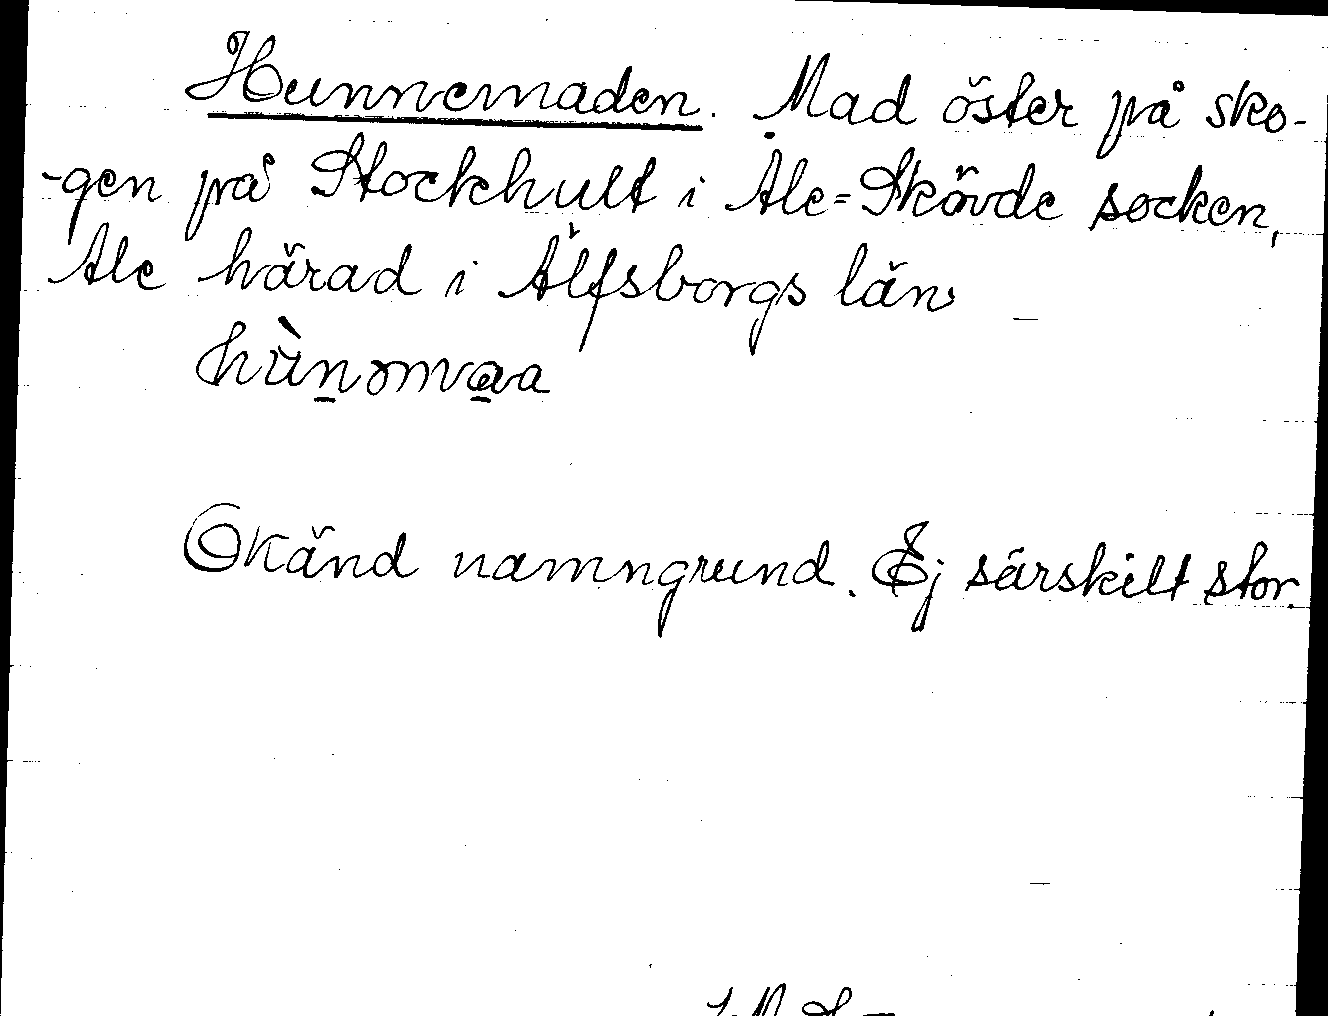 Hunnemaden. Mad öster på sko-
-gen på Stockhult i Ale=Skövde socken,
Ale härad i Älfsborgs län
hùnəmaa
Okänd namngrund. Ej särskilt stor.